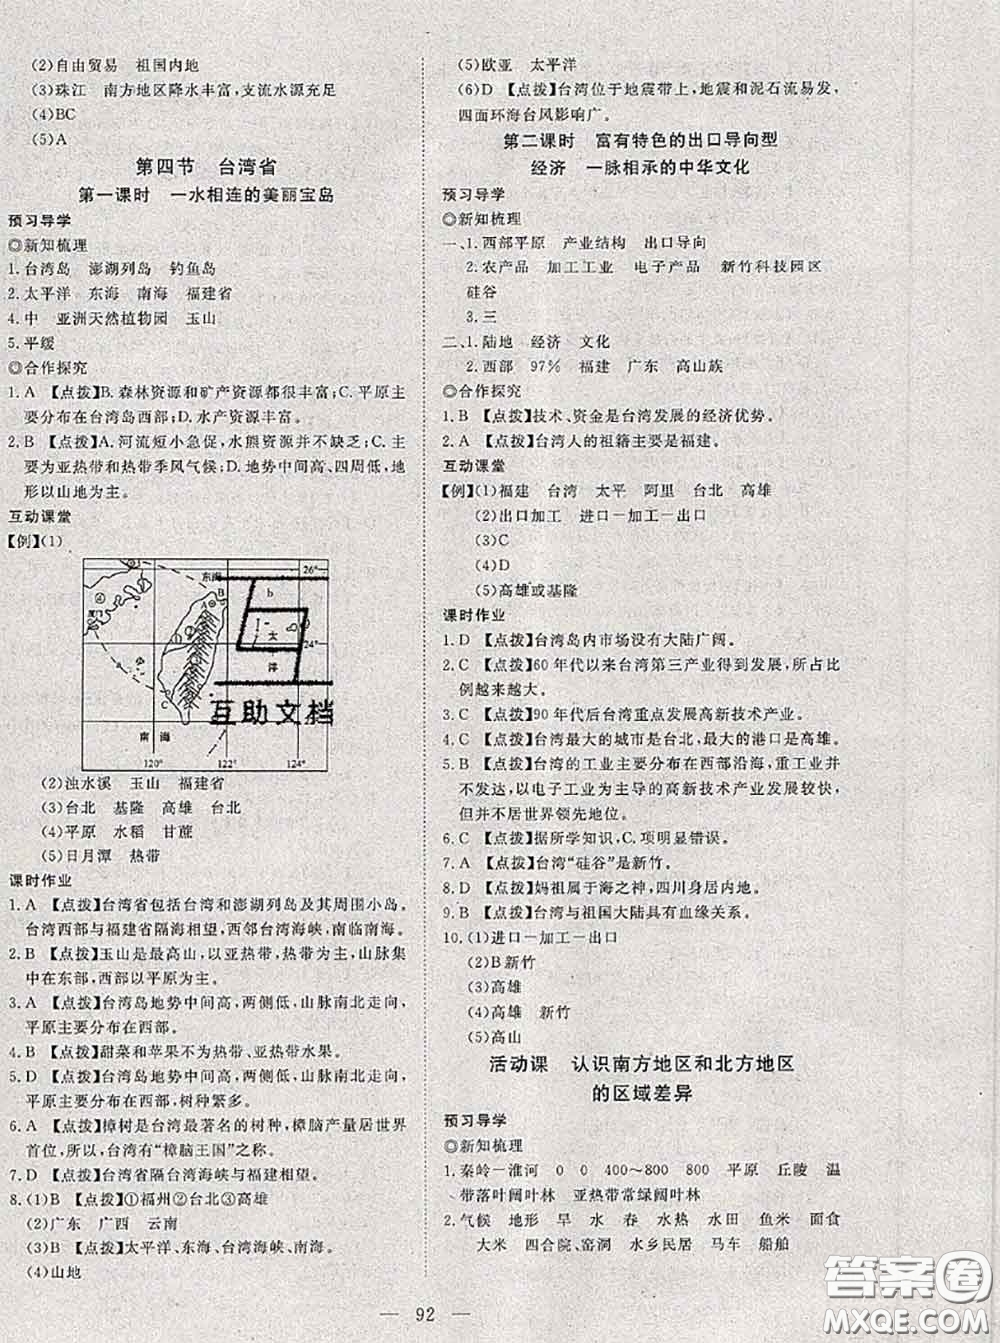 (2)自由贸易　祖国内地
(3)珠江　南方地区降水丰富,支流水源充足
(4)BC
(5)A
第四节　台湾省
第一课时　一水相连的美丽宝岛
预习导学
◎新知梳理
1.台湾岛　澎湖列岛　钓鱼岛
2.太平洋　东海　南海　福建省
4.中　亚洲天然植物园　玉山
5.平缓
◎合作探究
1.A　【点拨】B.森林资源和矿产资源都很丰富;C.平原主
要分布在台湾岛西部;D.水产资源丰富。
2.B　【点拨】A.河流短小急促,水熊资源并不缺乏;C.主
要为亚热带和热带季风气候;D.地势中间高、四周低,地
形以山地为主。
互动课堂
【例】(1)
东海
26°
24°
南　海
120°　122°　124°
互助文档
(2)浊水溪　玉山　福建省
(3)台北　基隆　高雄　台北
(4)平原　水稻　甘蔗
(5)日月潭　热带
课时作业
1.A　【点拨】台湾省包括台湾和澎湖列岛及其周围小岛。
台湾西部与福建省隔海相望,西邻台湾海峡,南临南海。
2.B　【点拨】玉山是最高山,以亚热带、热带为主,山脉集
中在东部,西部以平原为主。
3.A　【点拨】台湾岛地势中间高,两侧低,山脉南北走向,
平原主要分布在西部。
4.B　【点拨】甜菜和苹果不是热带、亚热带水果。
5.D　【点拨】台湾岛地势中间高,两侧低,山脉南北走向,
树种繁多。
6.A　【点拨】樟树是台湾最著名的树种,樟脑产量居世界
首位,所以,台湾有“樟脑王国”之称。
7.D　【点拨】台湾省隔台湾海峡与福建相望。
8.(1)B　【点拨】①福州②台北③高雄
(2)广东　广西　云南
(3)B　【点拨】太平洋、东海、台湾海峡、南海。
(4)山地
(5)欧亚　太平洋
(6)D　【点拨】台湾位于地震带上,地震和泥石流易发,
四面环海台风影响广。
第二课时　富有特色的出口导向型
经济　一脉相承的中华文化
预习导学
◎新知梳理
一、1.西部平原　产业结构　出口导向
2.农产品　加工工业　电子产品　新竹科技园区
硅谷
3.三
二、1.陆地　经济　文化
2.西部　97%　福建　广东　高山族
◎合作探究
1.B　【点拨】技术、资金是台湾发展的经济优势。
2.A　【点拨】台湾人的祖籍主要是福建。
互动课堂
【例】(1)福建　台湾　太平　阿里　台北　高雄
(2)出口加工　进口－加工－出口
(3)C
(4)D
(5)高雄或基隆
课时作业
1.D　【点拨】台湾岛内市场没有大陆广阔。
2.C　【点拨】60年代以来台湾第三产业得到发展,所占比
例越来越大。
3.C　【点拨】90年代后台湾重点发展高新技术产业。
4.C　【点拨】台湾最大的城市是台北,最大的港口是高雄。
5.D　【点拨】台湾的工业主要分布在西部沿海,重工业并
不发达,以电子工业为主导的高新技术产业发展较快,
但并不居世界领先地位。
6.C　【点拨】据所学知识,C.项明显错误。
7.A　【点拨】台湾“硅谷”是新竹。
8.D　【点拨】妈祖属于海之神,四川身居内地。
9.B　【点拨】台湾与祖国大陆具有血缘关系。
10.(1)进口－加工－出口
(2)B新竹
(3)高雄
(4)高雄　新竹
(5)高山
活动课　认识南方地区和北方地区
的区域差异
预习导学
◎新知梳理
1.秦岭－淮河　0　0　400～800　800　平原　丘陵　温
带落叶阔叶林　亚热带常绿阔叶林
2.气候　地形　旱　水　春　水热　水田　鱼米　面食
大米　四合院、窑洞　水乡民居　马车　船舶
— 92 —
答案圈
MXQE.COM